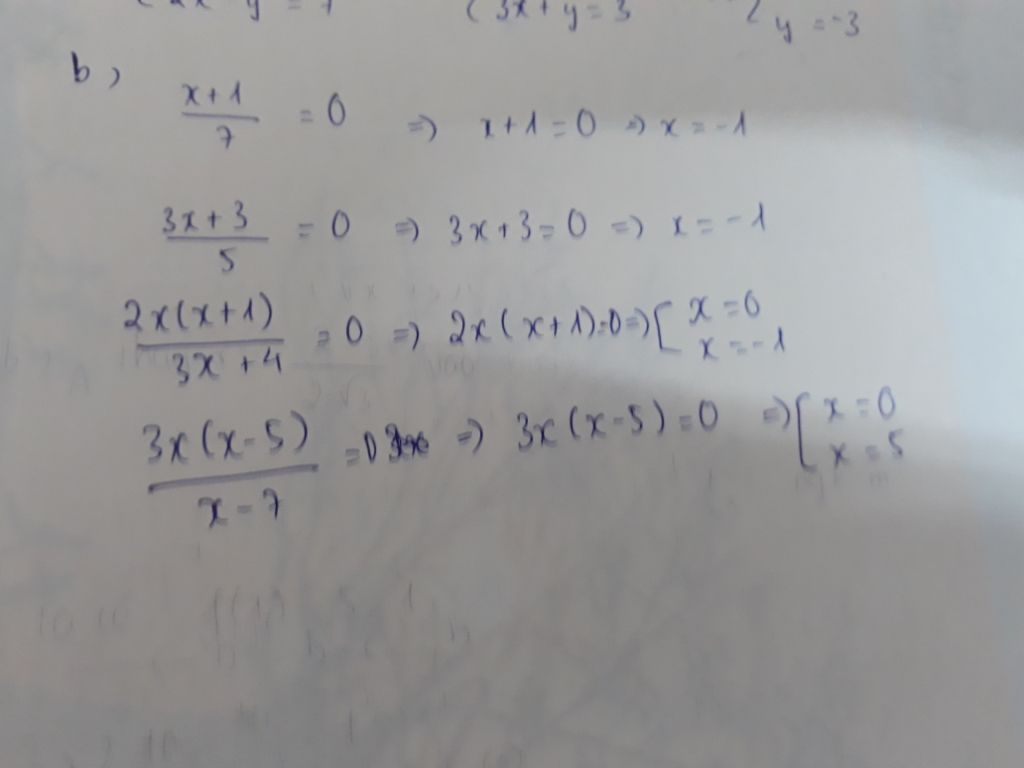 y = 7 { 3x + y = 3 { y = -3
b)
x+1/7 = 0 => x+1=0 => x = -1
3x+3/5 = 0 => 3x+3=0 => x = -1
2x(x+1)/3x+4 = 0 => 2x(x+1)=0 => [ x=0 x=-1
3x(x-5)/x-7 = 0 => 3x(x-5)=0 => [ x=0 x=5